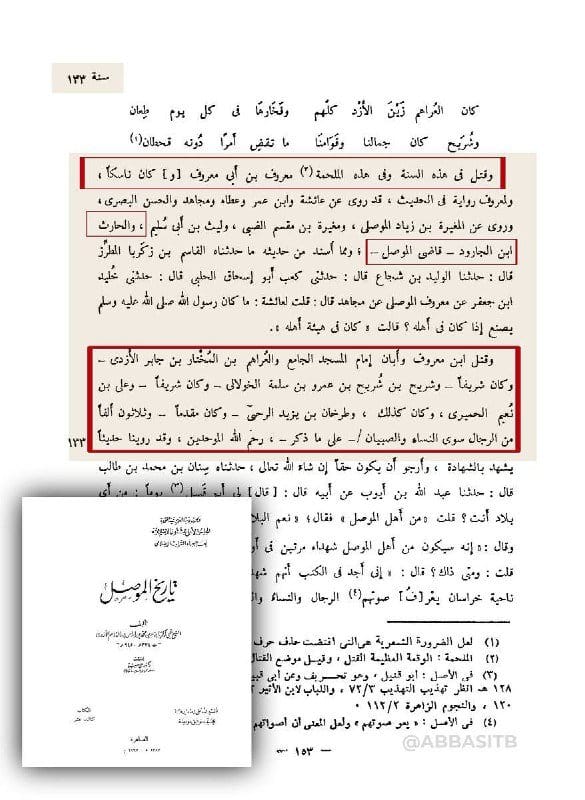 سنة ١٣٣
كان العُراهم زَيْنَ الأزد كلهم وفَخارها فى كل يوم طِعان
وشُرَيح كان جمالنا وقوامنا ما تنقض أمرًا دُونه قحطان(١)
وقتل فى هذه السنة وفى هذه الملحمة(٢) معروف بن أبى معروف [و] كان ناسكاً ،
ولمعروف رواية فى الحديث ، قد روى عن عائشة وابن عمر وعطاء ومجاهد والحسن البصرى ،
وروى عن المغيرة بن زياد الموصلى ، ومغيرة بن مقسم الضبى ، وليث بن أبى سُليم ، والحارث
ابن الجارود ــ قاضى الموصل ــ ؛ ومما أسند من حديثه ما حدثناه القاسم بن زكريا المطرِّز
قال : حدثنا الوليد بن شجاع قال : حدثنى كعب أبو إسحاق الحلبى قال : حدثنى خليد
ابن جعفر عن معروف الموصلى عن مجاهد قال : قلت لعائشة : ما كان رسول الله صلى الله عليه وسلم
يصنع إذا كان فى أهله ؟ قالت « كان فى هيئة أهله » .
وقتل ابن معروف وأبان إمام المسجد الجامع والعُراهم بن المُختار بن جابر الأزدى ــ
وكان شريفاً ــ وشريح بن شُريح بن عمرو بن سلمة الخولانى ــ وكان شريفاً ــ وعلى بن
نُعيم الحميرى ، وكان كذلك ، وطرخان بن يزيد الرحبىّ ــ وكان مقدماً ــ وثلاثون ألفاً
من الرجال سوى النساء والصبيان /ــ على ما ذكر ــ ، رحم الله الموحدين ، وقد روينا حديثاً
١٣٣
يشهد بالشهادة ، وأرجو أن يكون حقاً إن شاء الله تعالى ، حدثناه سِنان بن محمد بن طالب
قال : حدثنا عبد الله بن أيوب عن أبيه قال : [قال] لى أبو قَبيل(٣) يوماً : من أى
بلاد أنت ؟ قلت « من أهل الموصل » فقال : « نعم البلا
وقال : « إنه سيكون من أهل الموصل شهداء مرتين فى أو
قلت : ومتى ذاك ؟ قال : « إنى أجد فى الكتب أنهم شهد
ناحية خراسان يعْر[فُ] صوتهم(٤) الرجال والنساءُ وال
(١) لعل الضرورة الشعرية هى التى اقتضت حذف حرف
(٢) الملحمة : الوقعة العظيمة القتل ، وقيل موضع القتال
(٣) فى الأصل : أبو قنيل ، وهو تحريف وعن أبى قبي
١٢٨ هـ انظر تهذيب التهذيب ٧٢/٣ ، واللباب لابن الأثير ٢
١٢٠ ، والنجوم الزاهرة ١١٢/٢
(٤) فى الأصل : « يعو صوتهم » ولعل المعنى أن أصواتهم
ــ ١٥٣ ــ
تاريخ الموصل
تأليف
القاهرة
@ABBASITB